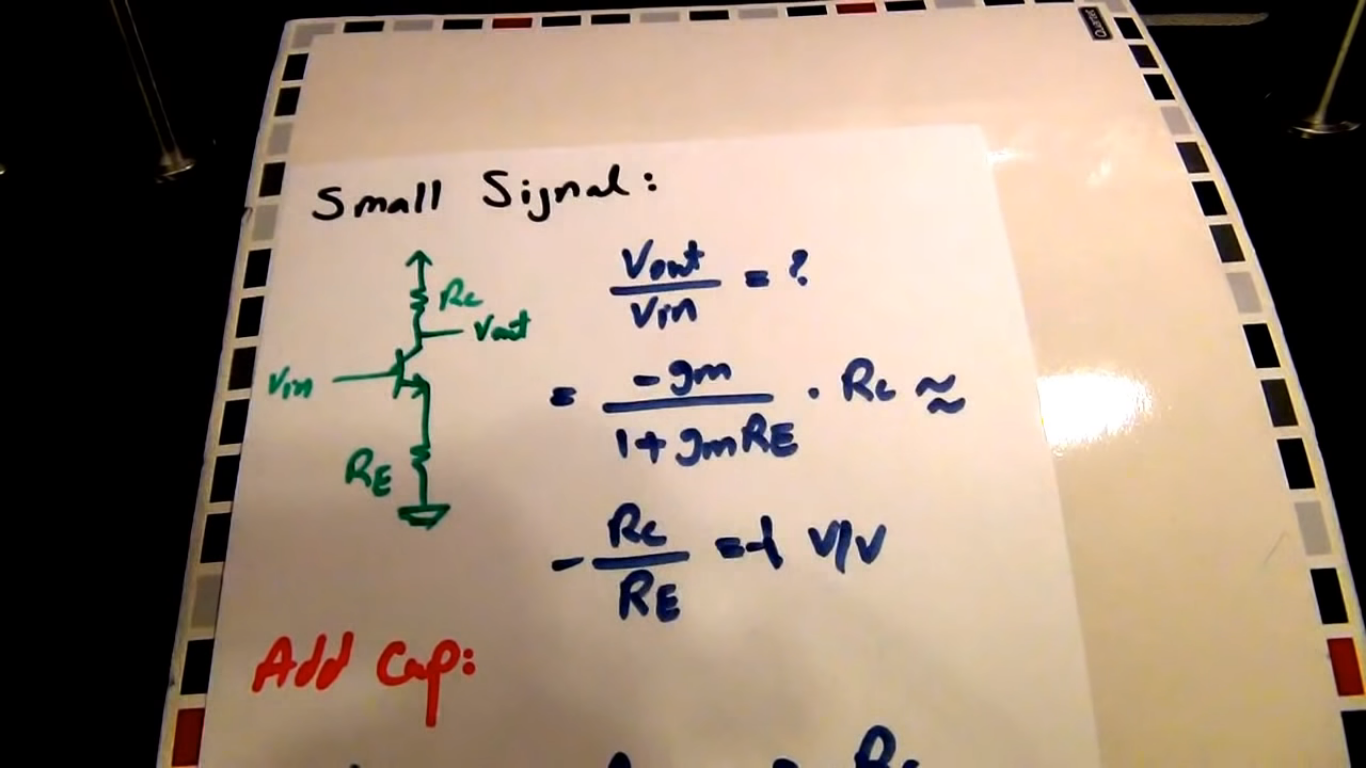 Quartet
Small Signal:
Vout/Vin = ?
Rc
Vout
Vin
= -gm/1+gmRE · Rc ≈
RE
-Rc/RE = -1 V/V
Add Cap:
Rc